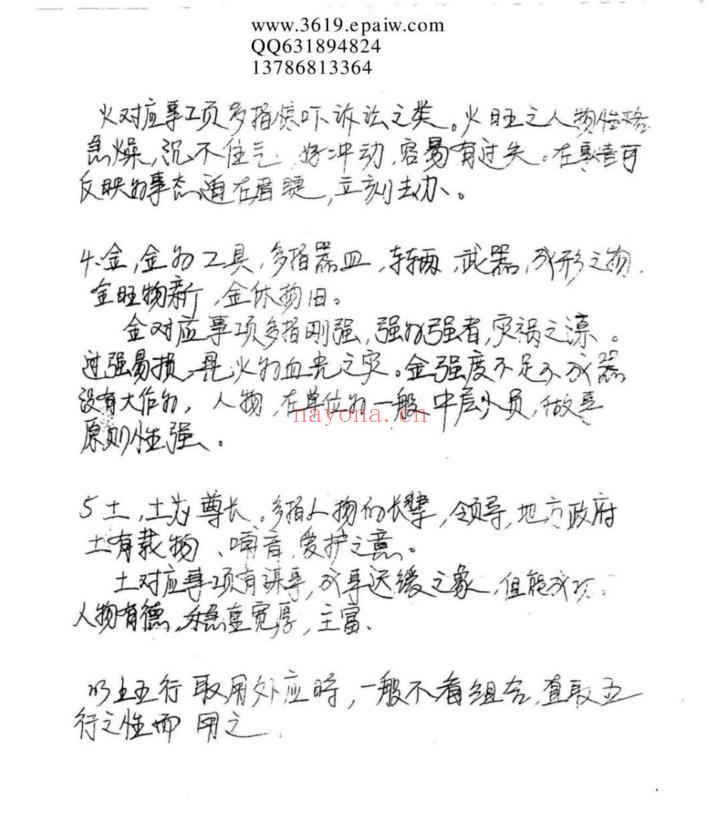 www.3619.epaiw.com
QQ631894824
13786813364
火对应事项多指惊吓诉讼之类。火旺之人物性格
急燥,沉不住气,好冲动,容易有过失。在事
反映的事态迫在眉睫,立刻去办、。
4、金,金为工具,多指器皿,车辆,武器,成形之物,
金旺物新,金休物旧。
金对应事项多指刚强,强为强者,灾祸之源。
过强易损,见火为血光之灾。金强度不足不成器
没有大作为,人物,在单位为一般中层人员,做事
nayona.cn
原则性强。
5土,土为尊长。多指人物的长辈,领导,地方政府
土有载物、哺育,爱护之意。
土对应事项有谋事,成事迟缓之象,但能成功.
人物有德,宽厚,主富、
以上五行取用外应时,一般不看组合,直取五
行之性而用之